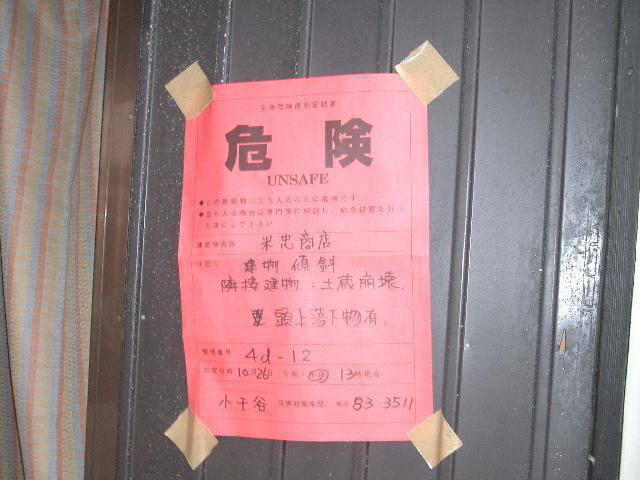 応急危険度判定結果
危険
UNSAFE
◆この建築物に立ち入ることは危険です
◆立ち入る場合は専門家に相談し、応急措置を行っ
た後にして下さい
建築物名称 米忠商店
注記：
建物傾斜
隣接建物：土蔵崩壊.
頭上落下物有.
整理番号 4d-12
判定日時 10月26日 午前・午後 13時現在
小千谷 災害対策本部 電話 83-3511